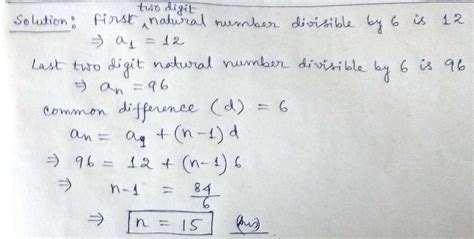 Solution: First two digit natural number divisible by 6 is 12
⇒ a₁ = 12
Last two digit natural number divisible by 6 is 96
⇒ aₙ = 96
common difference (d) = 6
aₙ = a₁ + (n-1) d
⇒ 96 = 12 + (n-1) 6
⇒ n-1 = 84/6
⇒ n = 15 (Ans)